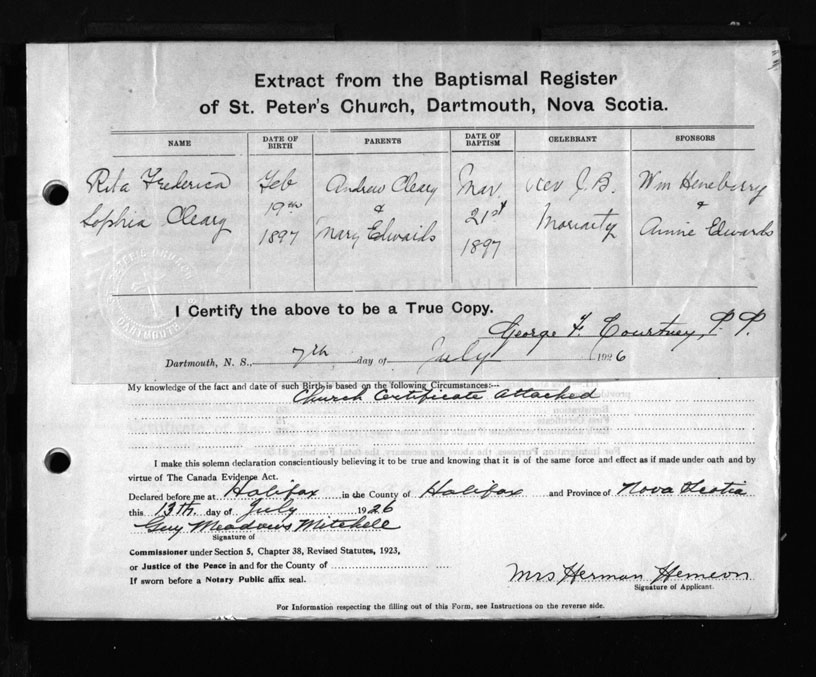 Extract from the Baptismal Register
of St. Peter's Church, Dartmouth, Nova Scotia.
NAME DATE OF BIRTH PARENTS DATE OF BAPTISM CELEBRANT SPONSORS
Rita Frederica Feb Andrew Cleary Mar. Rev J. B. Wm Heneberry
Sophia Cleary 19th & 21st Moriarty &
1897 Mary Edwards 1897 Annie Edwards
I Certify the above to be a True Copy.
George F. Courtney, P. P.
Dartmouth, N. S., 7th day of July 1926
My knowledge of the fact and date of such Birth is based on the following Circumstances:—
Church Certificate attached
I make this solemn declaration conscientiously believing it to be true and knowing that it is of the same force and effect as if made under oath and by
virtue of The Canada Evidence Act.
Declared before me at Halifax in the County of Halifax and Province of Nova Scotia
this 13th day of July 1926
Guy Meadows Mitchell
Signature of
Commissioner under Section 5, Chapter 38, Revised Statutes, 1923,
or Justice of the Peace in and for the County of
If sworn before a Notary Public affix seal.
Mrs Herman Hemeon
Signature of Applicant.
For Information respecting the filling out of this Form, see Instructions on the reverse side.